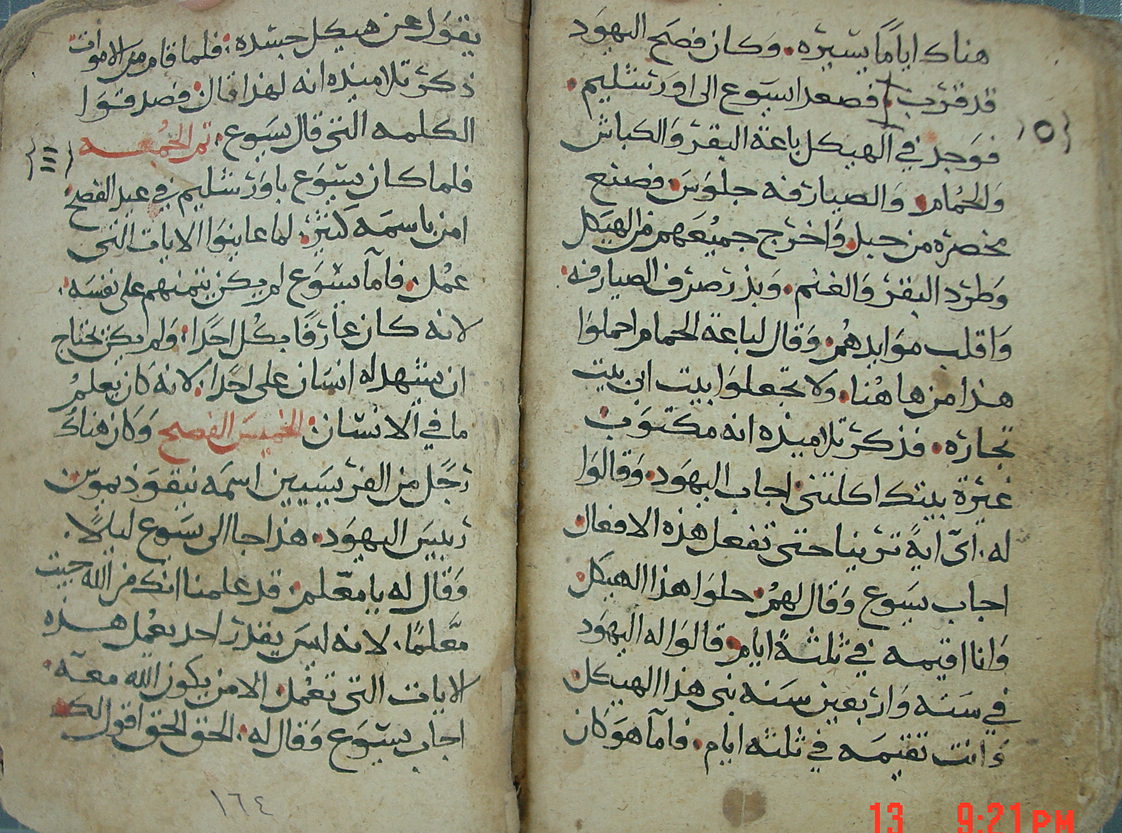 هناك اياما يسيره. وكان فصح اليهود
قد قرب. فصعد ايسوع الى اورشليم.
فوجد في الهيكل باعة البقر والكباش
والحمام. والصيارفه جلوس. فصنع
مخصره من حبل. واخرج جميعهم من الهيكل
وطرد البقر والغنم. وبذر صرف الصيارفه.
واقلب موايدهم. وقال لباعة الحمام احملوا
هذا من هاهنا. ولا تجعلوا بيت ابي بيت
تجاره. فذكر تلاميذه انه مكتوب
غيرة بيتك اكلتني. اجاب اليهود. وقالوا
له. اىّ ايةً ترينا حتى تفعل هذه الافعال.
اجاب يسوع وقال لهم. حلوا هذا الهيكل.
وانا اقيمه في ثلثةً ايام. قالوا له اليهود
في سته واربعين سنه بني هذا الهيكل.
وانت تقيمه في ثلثه ايام. فاما هو كان
{٥}
يقول عن هيكل جسده. فلما قام من الاموات
ذكر تلاميذه انه لهذا قال. فصدقوا
الكلمه التي قال يسوع. تم الجمعه
فلما كان يسوع باورشليم في عيد الفصح
امن باسمه كثير. لما عاينوا الايات التي
عمل. فاما يسوع لم يكن يتمنهم على نفسه.
لانه كان عارفًا بكل احدًا. ولم يكن يحتاج
ان يشهد له انسان على احدًا. لانه كان يعلم
ما في الانسان. الخميس الفصح وكان هناك
رجل من الفريسيين اسمه نيقوذيموس
رييس اليهود. هذا جا الى يسوع ليلاً.
وقال له يا معلم. قد علمنا انك من الله جيت
معلمًا. لانه ليس يقدر احد يعمل هذه
الايات التي تعمل. الا من يكون الله معه.
اجاب يسوع وقال له. الحق الحق اقول لك
١٦٤
13 9:21 PM